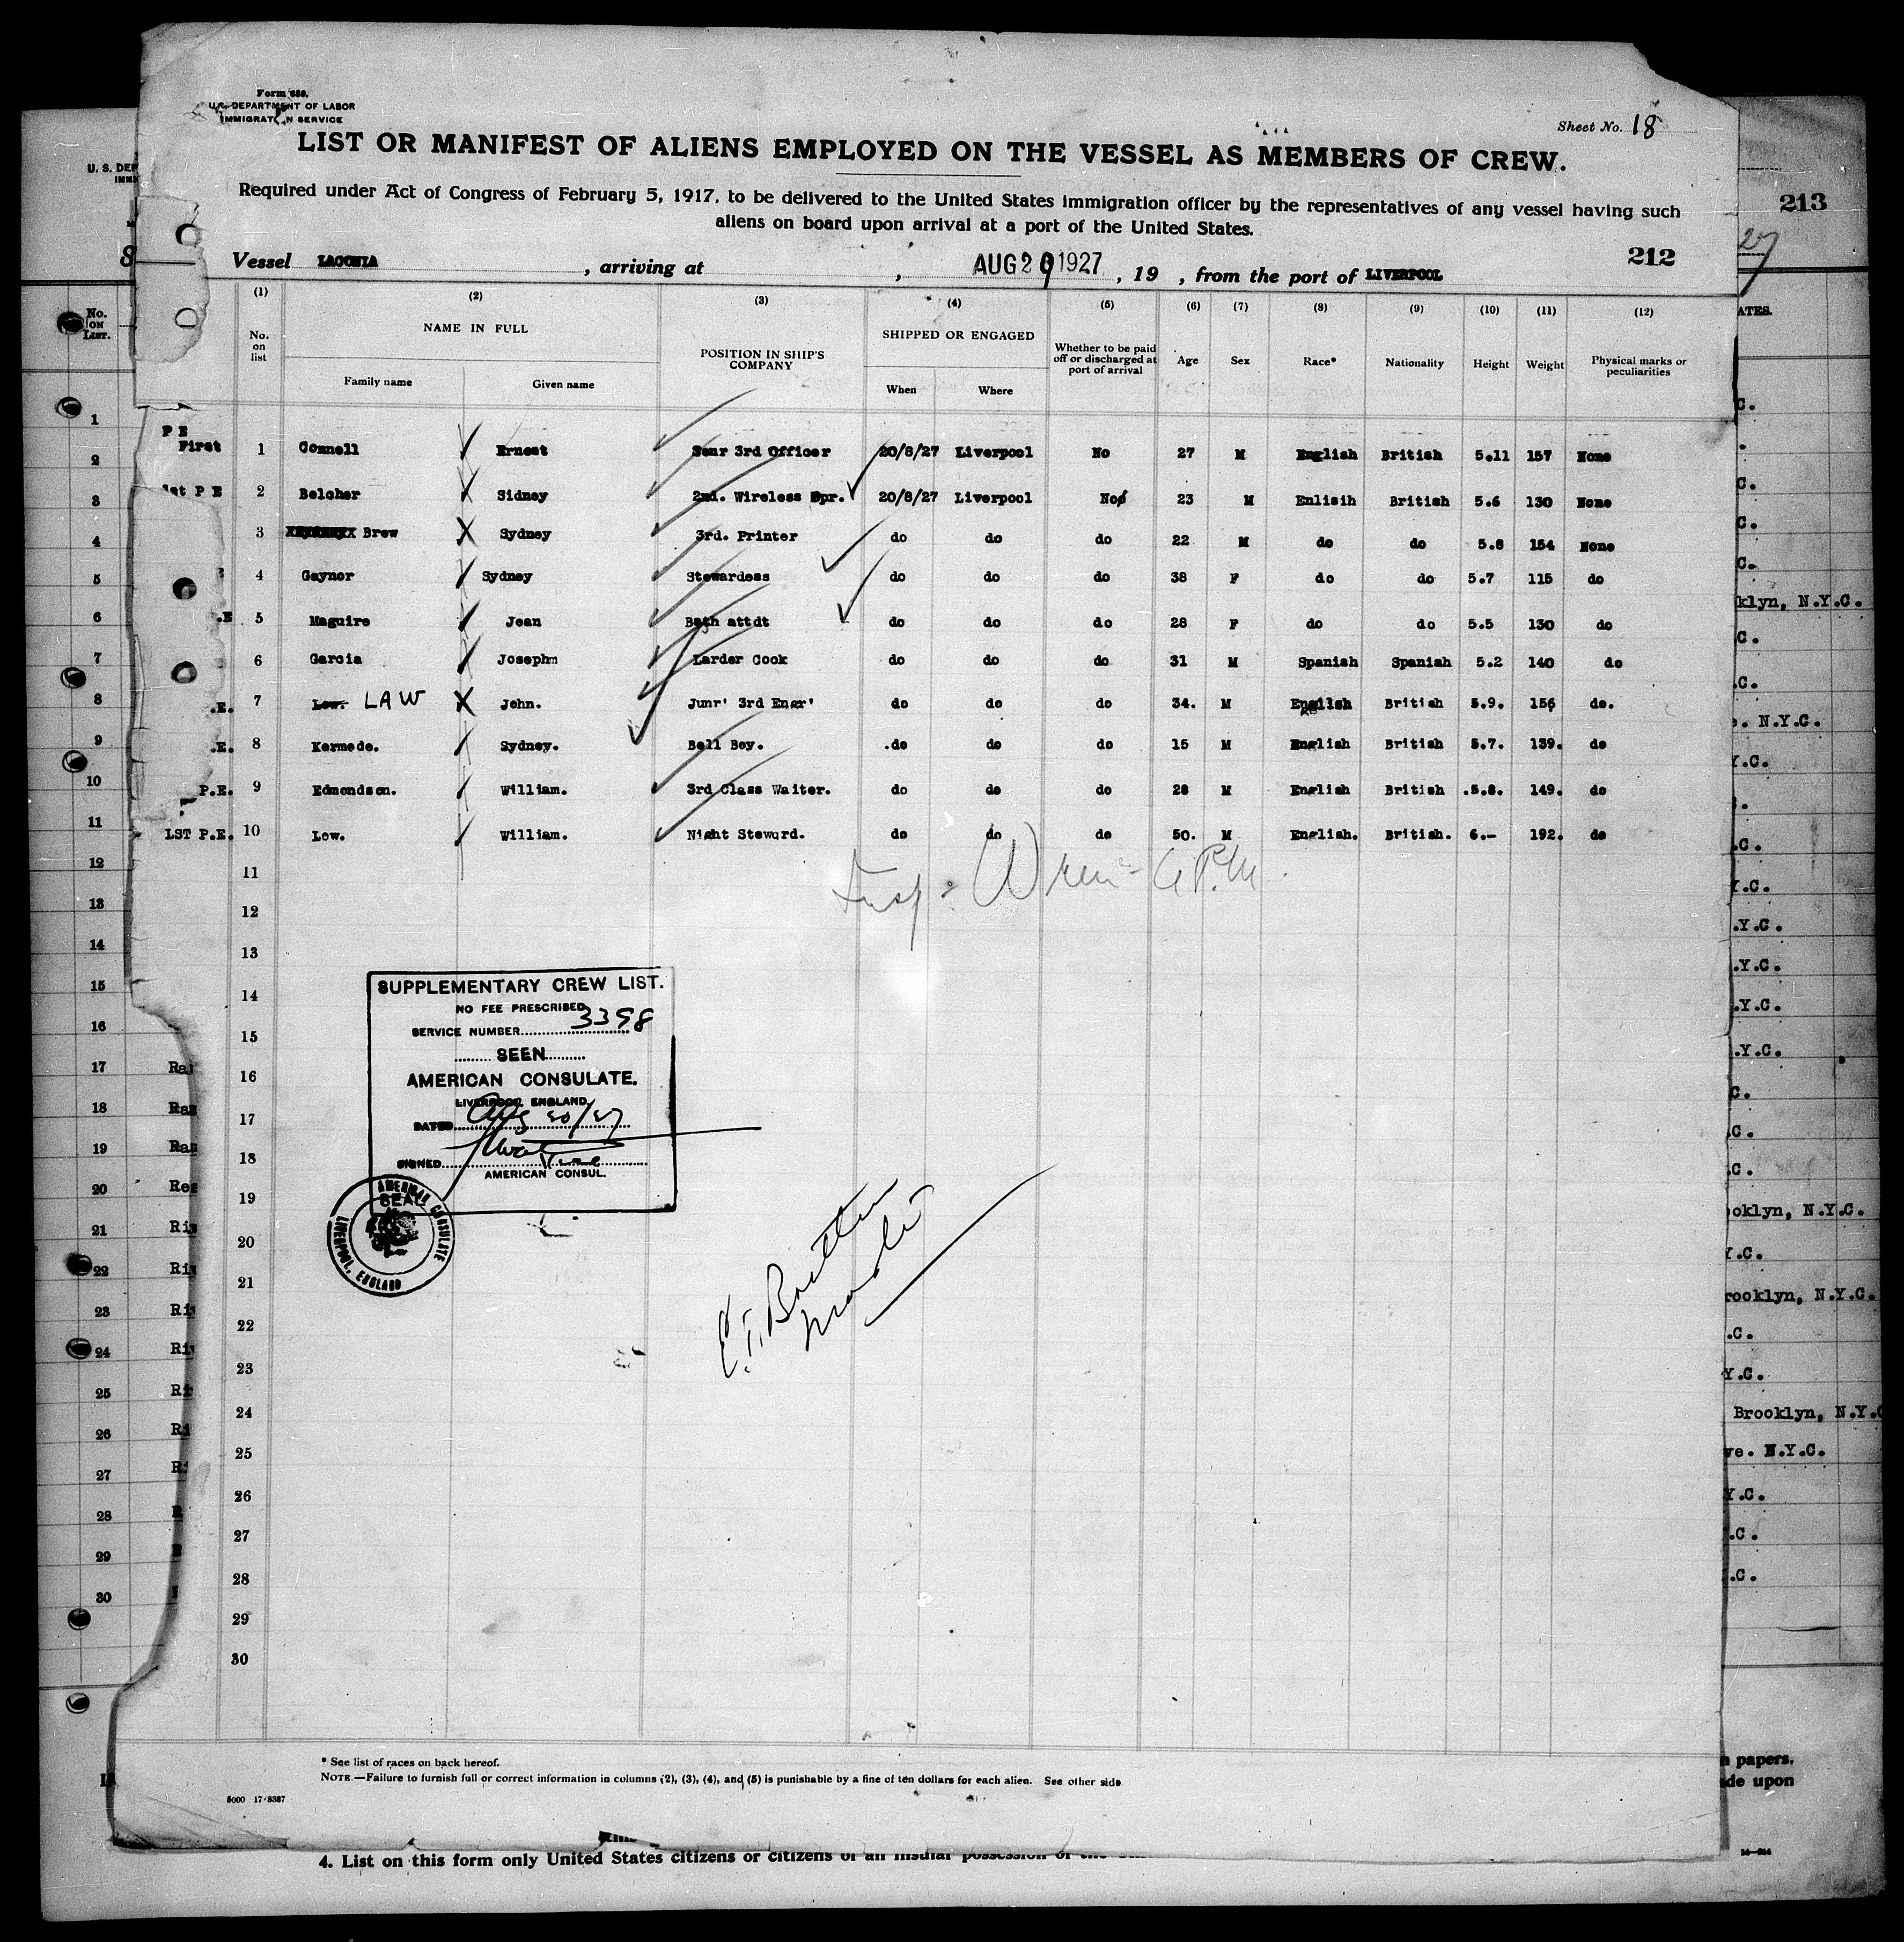 Form 689.
U.S. DEPARTMENT OF LABOR
IMMIGRATION SERVICE
Sheet No. 18
LIST OR MANIFEST OF ALIENS EMPLOYED ON THE VESSEL AS MEMBERS OF CREW.
Required under Act of Congress of February 5, 1917, to be delivered to the United States immigration officer by the representatives of any vessel having such
aliens on board upon arrival at a port of the United States.
212
Vessel LACONIA, arriving at , AUG 29 1927, 19 , from the port of LIVERPOOL
(1) (2) (3) (4) (5) (6) (7) (8) (9) (10) (11) (12)
No. on list NAME IN FULL POSITION IN SHIP'S COMPANY SHIPPED OR ENGAGED Whether to be paid off or discharged at port of arrival Age Sex Race* Nationality Height Weight Physical marks or peculiarities
Family name Given name When Where
P E
First 1 Connell Ernest Senr 3rd Officer 20/8/27 Liverpool No 27 M English British 5.11 157 None
1st P E 2 Belcher Sidney 2nd. Wireless Opr. 20/8/27 Liverpool No 23 M Enlisih British 5.6 130 None
3 Brew Sydney 3rd. Printer do do do 22 M do do 5.8 154 None
4 Gaynor Sydney Stewardess do do do 38 F do do 5.7 115 do
.E 5 Maguire Jean Bath attdt do do do 28 F do do 5.5 130 do
6 Garcia Josephn Larder Cook do do do 31 M Spanish Spanish 5.2 140 do
.E. 7 Low. LAW John. Junr' 3rd Engr' do do do 34. M English British 5.9. 156 do.
.E. 8 Kermode. Sydney. Bell Boy. .do do do 15 M English British 5.7. 139. do
P.E. 9 Edmondson. William. 3rd Class Waiter. do do do 28 M English British .5.8. 149. do
1ST P.E. 10 Low. William. Night Steward. do do do 50. M English. British. 6.- 192. do
11
12
13
14
15
16
17
18
19
20
21
22
23
24
25
26
27
28
29
30
SUPPLEMENTARY CREW LIST.
NO FEE PRESCRIBED
SERVICE NUMBER 3398
SEEN
AMERICAN CONSULATE.
LIVERPOOL, ENGLAND.
DATED Aug 20/27
SIGNED
AMERICAN CONSUL.
SEAL
AMERICAN CONSULATE
LIVERPOOL, ENGLAND
* See list of races on back hereof.
NOTE.—Failure to furnish full or correct information in columns (2), (3), (4), and (5) is punishable by a fine of ten dollars for each alien. See other side
5000 17-8387
213
27
U. S. DEP
No. ON LIST.
1
2
3
4
5
6
7
8
9
10
11
12
13
14
15
16
17
18
19
20
21
22
23
24
25
26
27
28
29
30
ATES.
klyn, N.Y.C.
. N.Y.C.
oklyn, N.Y.C.
rooklyn, N.Y.C.
Brooklyn, N.Y.C
ve. N.Y.C.
papers.
de upon
4. List on this form only United States citizens or citizens of an insular possession of the